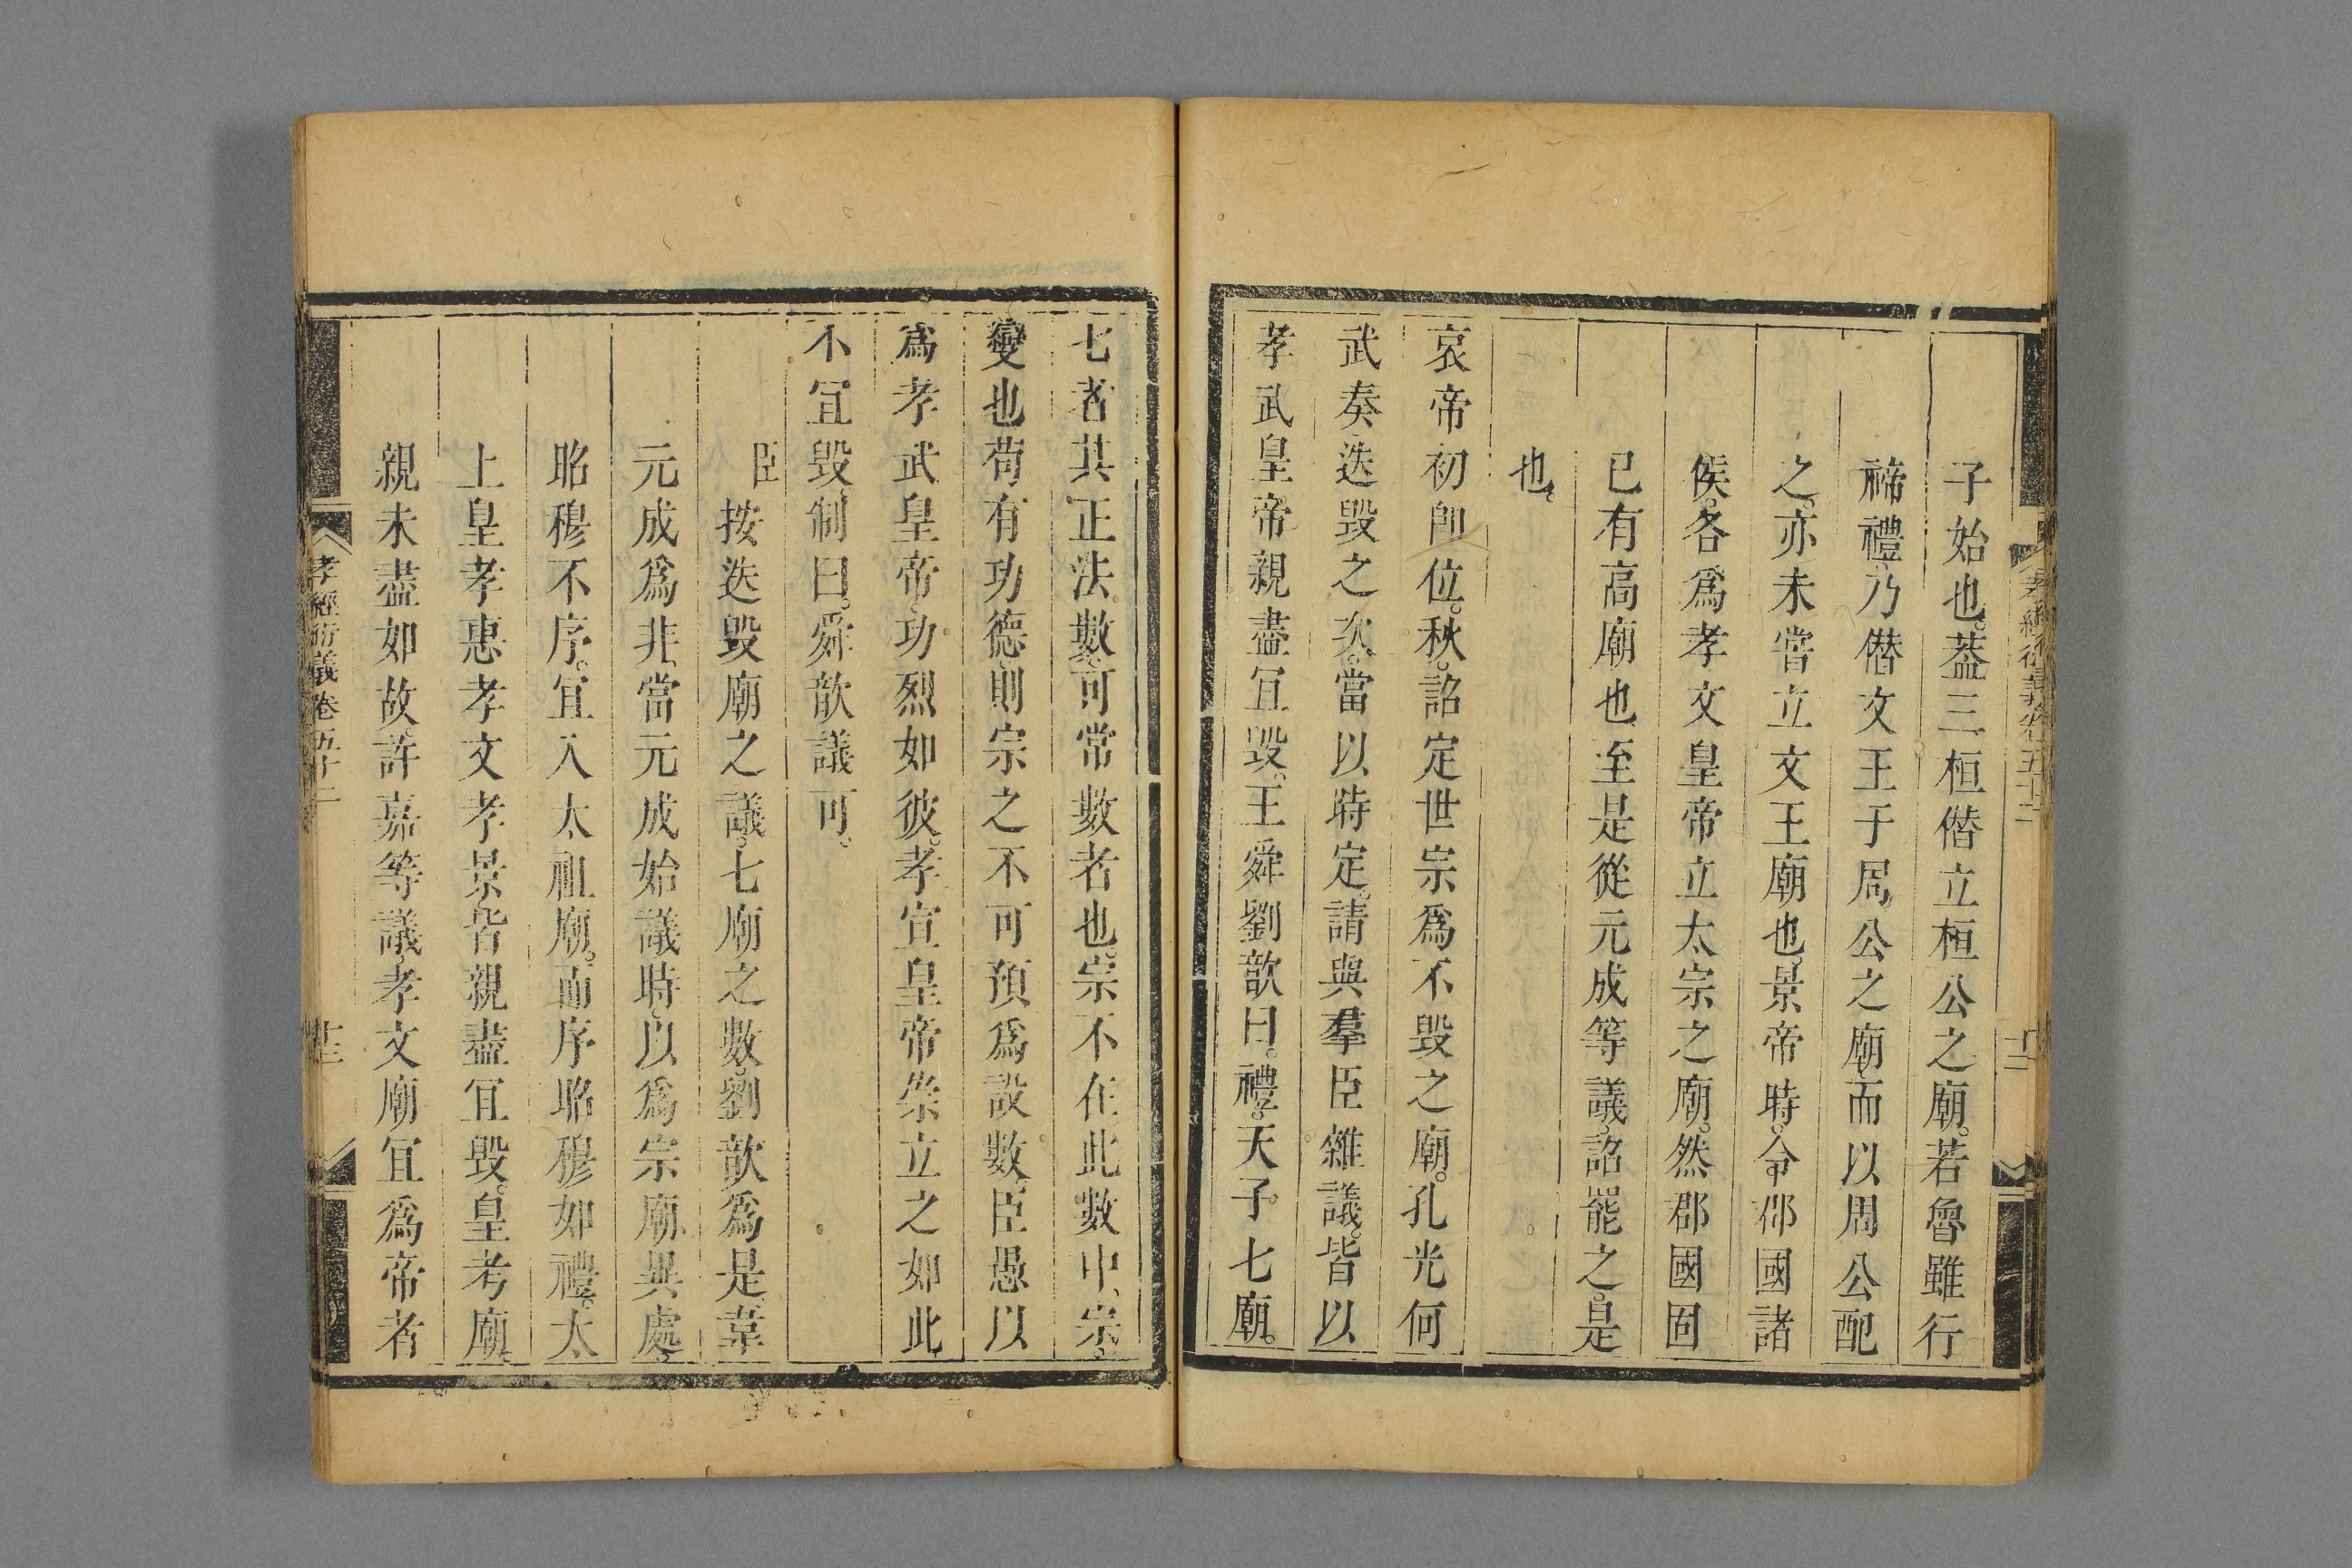 孝經衍義卷五十二
十二
子始也。葢三桓僭立桓公之廟。若魯雖行
禘禮、乃僭文王于周公之廟、而以周公配
之。亦未嘗立文王廟也。景帝時。令郡國諸
侯。各爲孝文皇帝立太宗之廟。然郡國固
已有高廟也至是從元成等議。詔罷之。是
也。
哀帝初卽位。秋。詔定世宗爲不毀之廟。孔光何
武奏迭毀之次。當以時定。請與羣臣雜議。皆以
孝武皇帝親盡宜毀。王舜劉歆曰。禮。天子七廟。
七者其正法數。可常數者也。宗不在此數中、宗、
變也苟有功德、則宗之不可預爲設數、臣愚以
爲孝武皇帝、功烈如彼。孝宣皇帝崇立之如此
不宜毀、制曰。舜歆議可。
臣按迭毀廟之議。七廟之數。劉歆爲是、韋
元成爲非、當元成始議時、以爲宗廟異處、
昭穆不序。宜入太祖廟。而序昭穆如禮。太
上皇孝惠孝文孝景、皆親盡宜毀。皇考廟
親未盡如故、許嘉等議、孝文廟宜爲帝者
孝經衍義卷五十二
十三